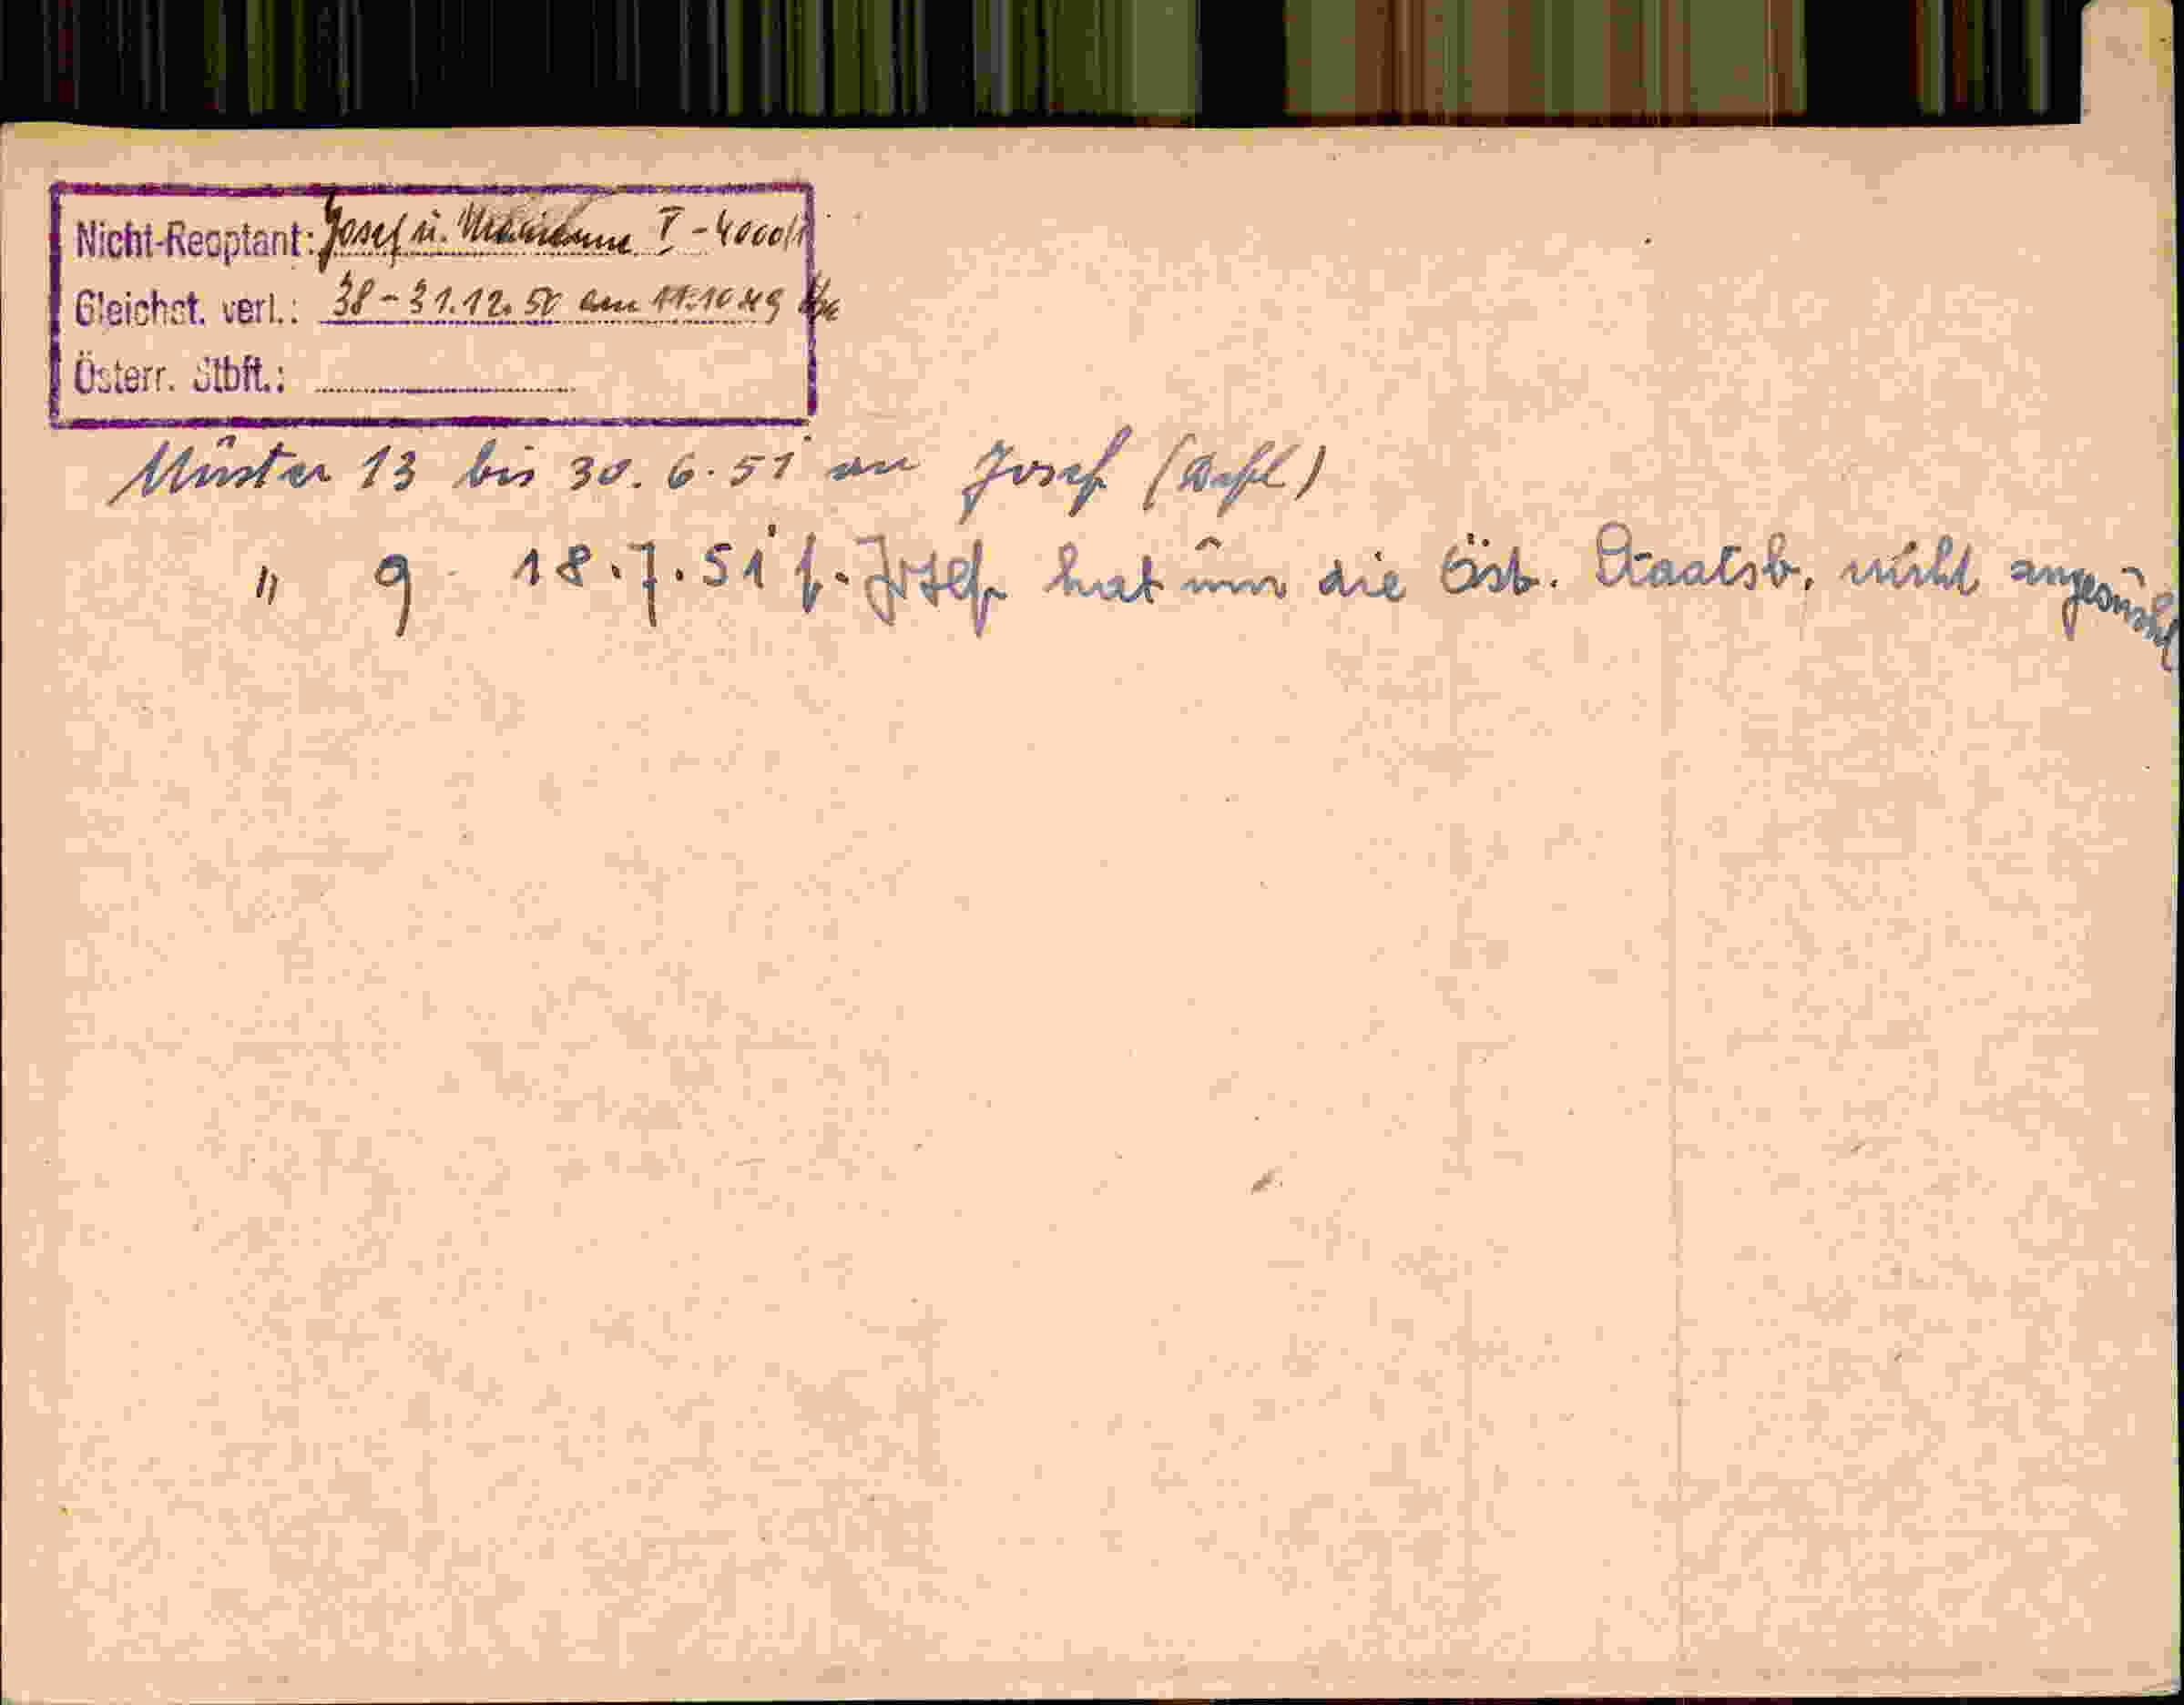 Nicht-Reoptant: Josef u. Marianne I - 4000/1
Gleichst. verl.: 38 - 31.12.50 am 11.10.49
Österr. Stbft.:
Münster 13 bis 30.6.51 an Josef (Aufl)
" 9 18.7.51 f. Josef hat um die Öst. Staatsb. nicht angesucht